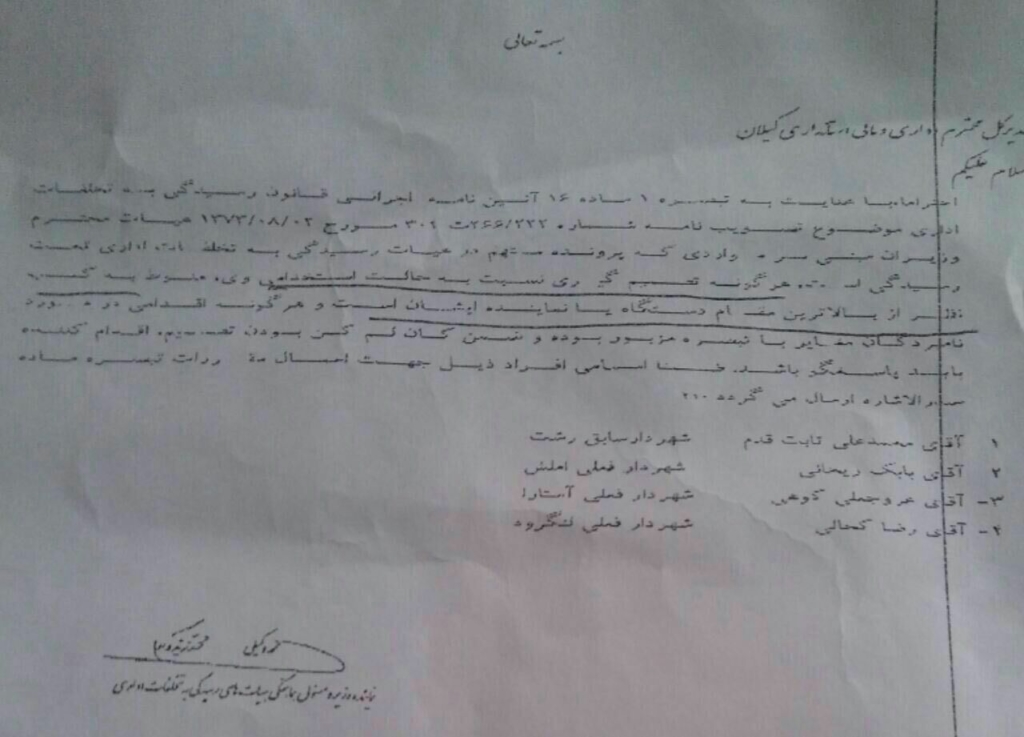 بسمه تعالی
مدیر کل محترم اداری و مالی استانداری گیلان
سلام علیکم
احتراما،با عنایت به تبصره ۱ ماده ۱۶ آئین نامه اجرائی قانون رسیدگی به تخلفات
اداری موضوع تصویب نامه شماره ۲۶۶/۲۲۲ت ۳۰۲ مورخ ۱۳۷۳/۰۸/۰۲ هیات محترم
وزیران مبنی بر مواردی که پرونده متهم در هیات رسیدگی به تخلفات اداری تحت
رسیدگی است، هرگونه تصمیم گیری نسبت به حالت استخدامی وی، منوط به کسب
نظر از بالاترین مقام دستگاه یا نماینده ایشان است و هرگونه اقدامی در مورد
نامبردگان مغایر با تبصره مزبور بوده و ضمن کان لم یکن بودن تصمیم، اقدام کننده
باید پاسخگو باشد. ضمنا اسامی افراد ذیل جهت اعمال مقررات تبصره ماده
صدرالاشاره ارسال می گردد
۱ آقای محمدعلی ثابت قدم شهردار سابق رشت
۲ آقای بابک ریحانی شهردار فعلی املش
۳- آقای عروجعلی شهردار فعلی آستارا
۴- آقای رضا کحالی شهردار فعلی لنگرود
نماینده وزیر و مسئول هماهنگی هیات های رسیدگی به تخلفات اداری